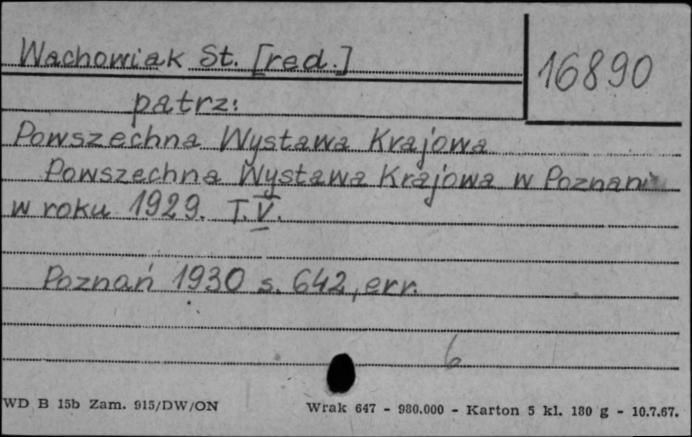 Wachowiak St. [red.]
16890
patrz:
Powszechna Wystawa Krajowa
Powszechna Wystawa Krajowa w Poznaniu
w roku 1929. T. V.
Poznań 1930 s. 642, err.
6
WD B 15b Zam. 915/DW/ON
Wrak 647 - 980.000 - Karton 5 kl. 180 g - 10.7.67.